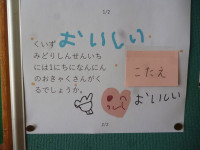 くいず
おいしい
みどりしんせんいち
には1にちになんにん
のおきゃくさんがく
るでしょうか。
こたえ
おいしい